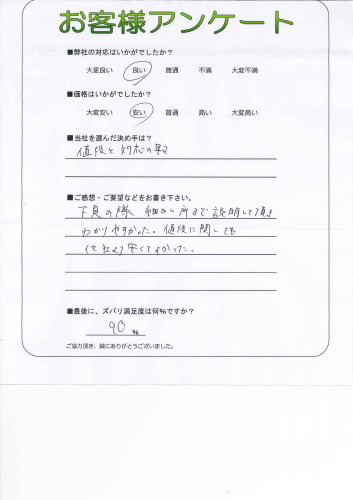 お客様アンケート
■弊社の対応はいかがでしたか？
大変良い 良い 普通 不満 大変不満
■価格はいかがでしたか？
大変安い 安い 普通 高い 大変高い
■当社を選んだ決め手は？
値段と対応の
■ご感想・ご要望などをお書き下さい。
下見の際 細かい所まで説明して頂き
わかりやすかった。値段に関しても
他社より安くてよかった。
■最後に、ズバリ満足度は何％ですか？
90 %
ご協力頂き、誠にありがとうございました。